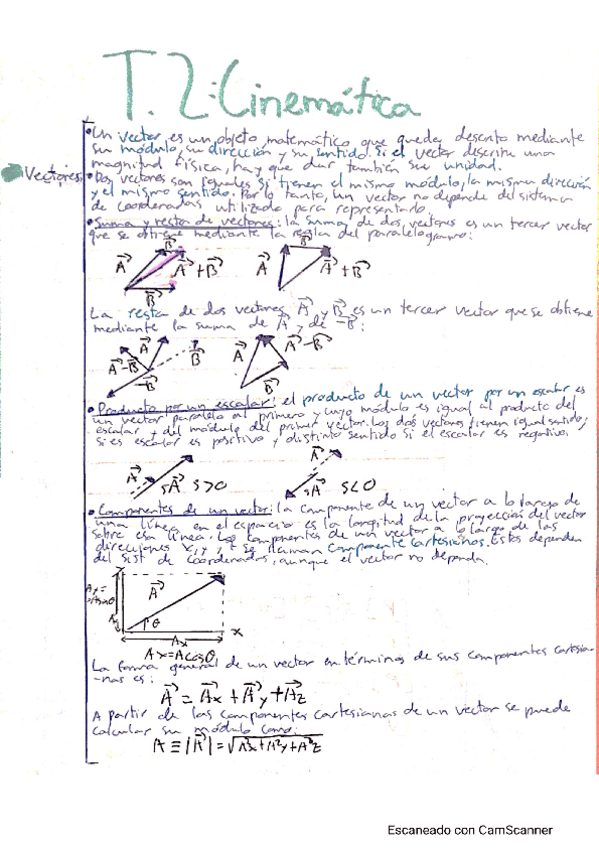 T.2: Cinemática
•Un vector es un objeto matemático que queda descrito mediante
su módulo, su dirección y su sentido. Si el vector describe una
magnitud física, hay que dar también su unidad.
Vectores
•Dos vectores son iguales si tienen el mismo módulo, la misma dirección
y el mismo sentido. Por lo tanto, un vector no depende del sistema
de coordenadas utilizado para representarlo.
•Suma y resta de vectores: la suma de dos vectores es un tercer vector
que se obtiene mediante la regla del paralelogramo:
B⃗ B⃗
A⃗ A⃗+B⃗ A⃗ A⃗+B⃗
B⃗
La resta de dos vectores, A⃗ y B⃗ es un tercer vector que se obtiene
mediante la suma de A⃗ y de -B⃗:
A⃗ B⃗ A⃗ A⃗-B⃗
A⃗-B⃗
-B⃗ B⃗
•Producto por un escalar: el producto de un vector por un escalar es
un vector paralelo al primero y cuyo módulo es igual al producto del
escalar y del módulo del primer vector. Los dos vectores tienen igual sentido,
si es escalar es positivo y distinto sentido si el escalar es negativo.
A⃗ sA⃗ s>0 A⃗ sA⃗ s<0
•Componentes de un vector: la componente de un vector a lo largo de
una línea en el espacio es la longitud de la proyección del vector
sobre esa línea. Las componentes de un vector a lo largo de las
direcciones x, y, z se llaman componente cartesianos. Estos dependen
del sist de coordenadas, aunque el vector no dependa.
y
Ay=
Asenθ
A⃗
θ
Ax x
Ax=Acosθ
La forma general de un vector en términos de sus componentes cartesia-
-nas es:
A⃗ = A⃗x + A⃗y + A⃗z
A partir de las componentes cartesianas de un vector se puede
calcular su módulo como:
A ≡ |A⃗| = √A²x+A²y+A²z
Escaneado con CamScanner